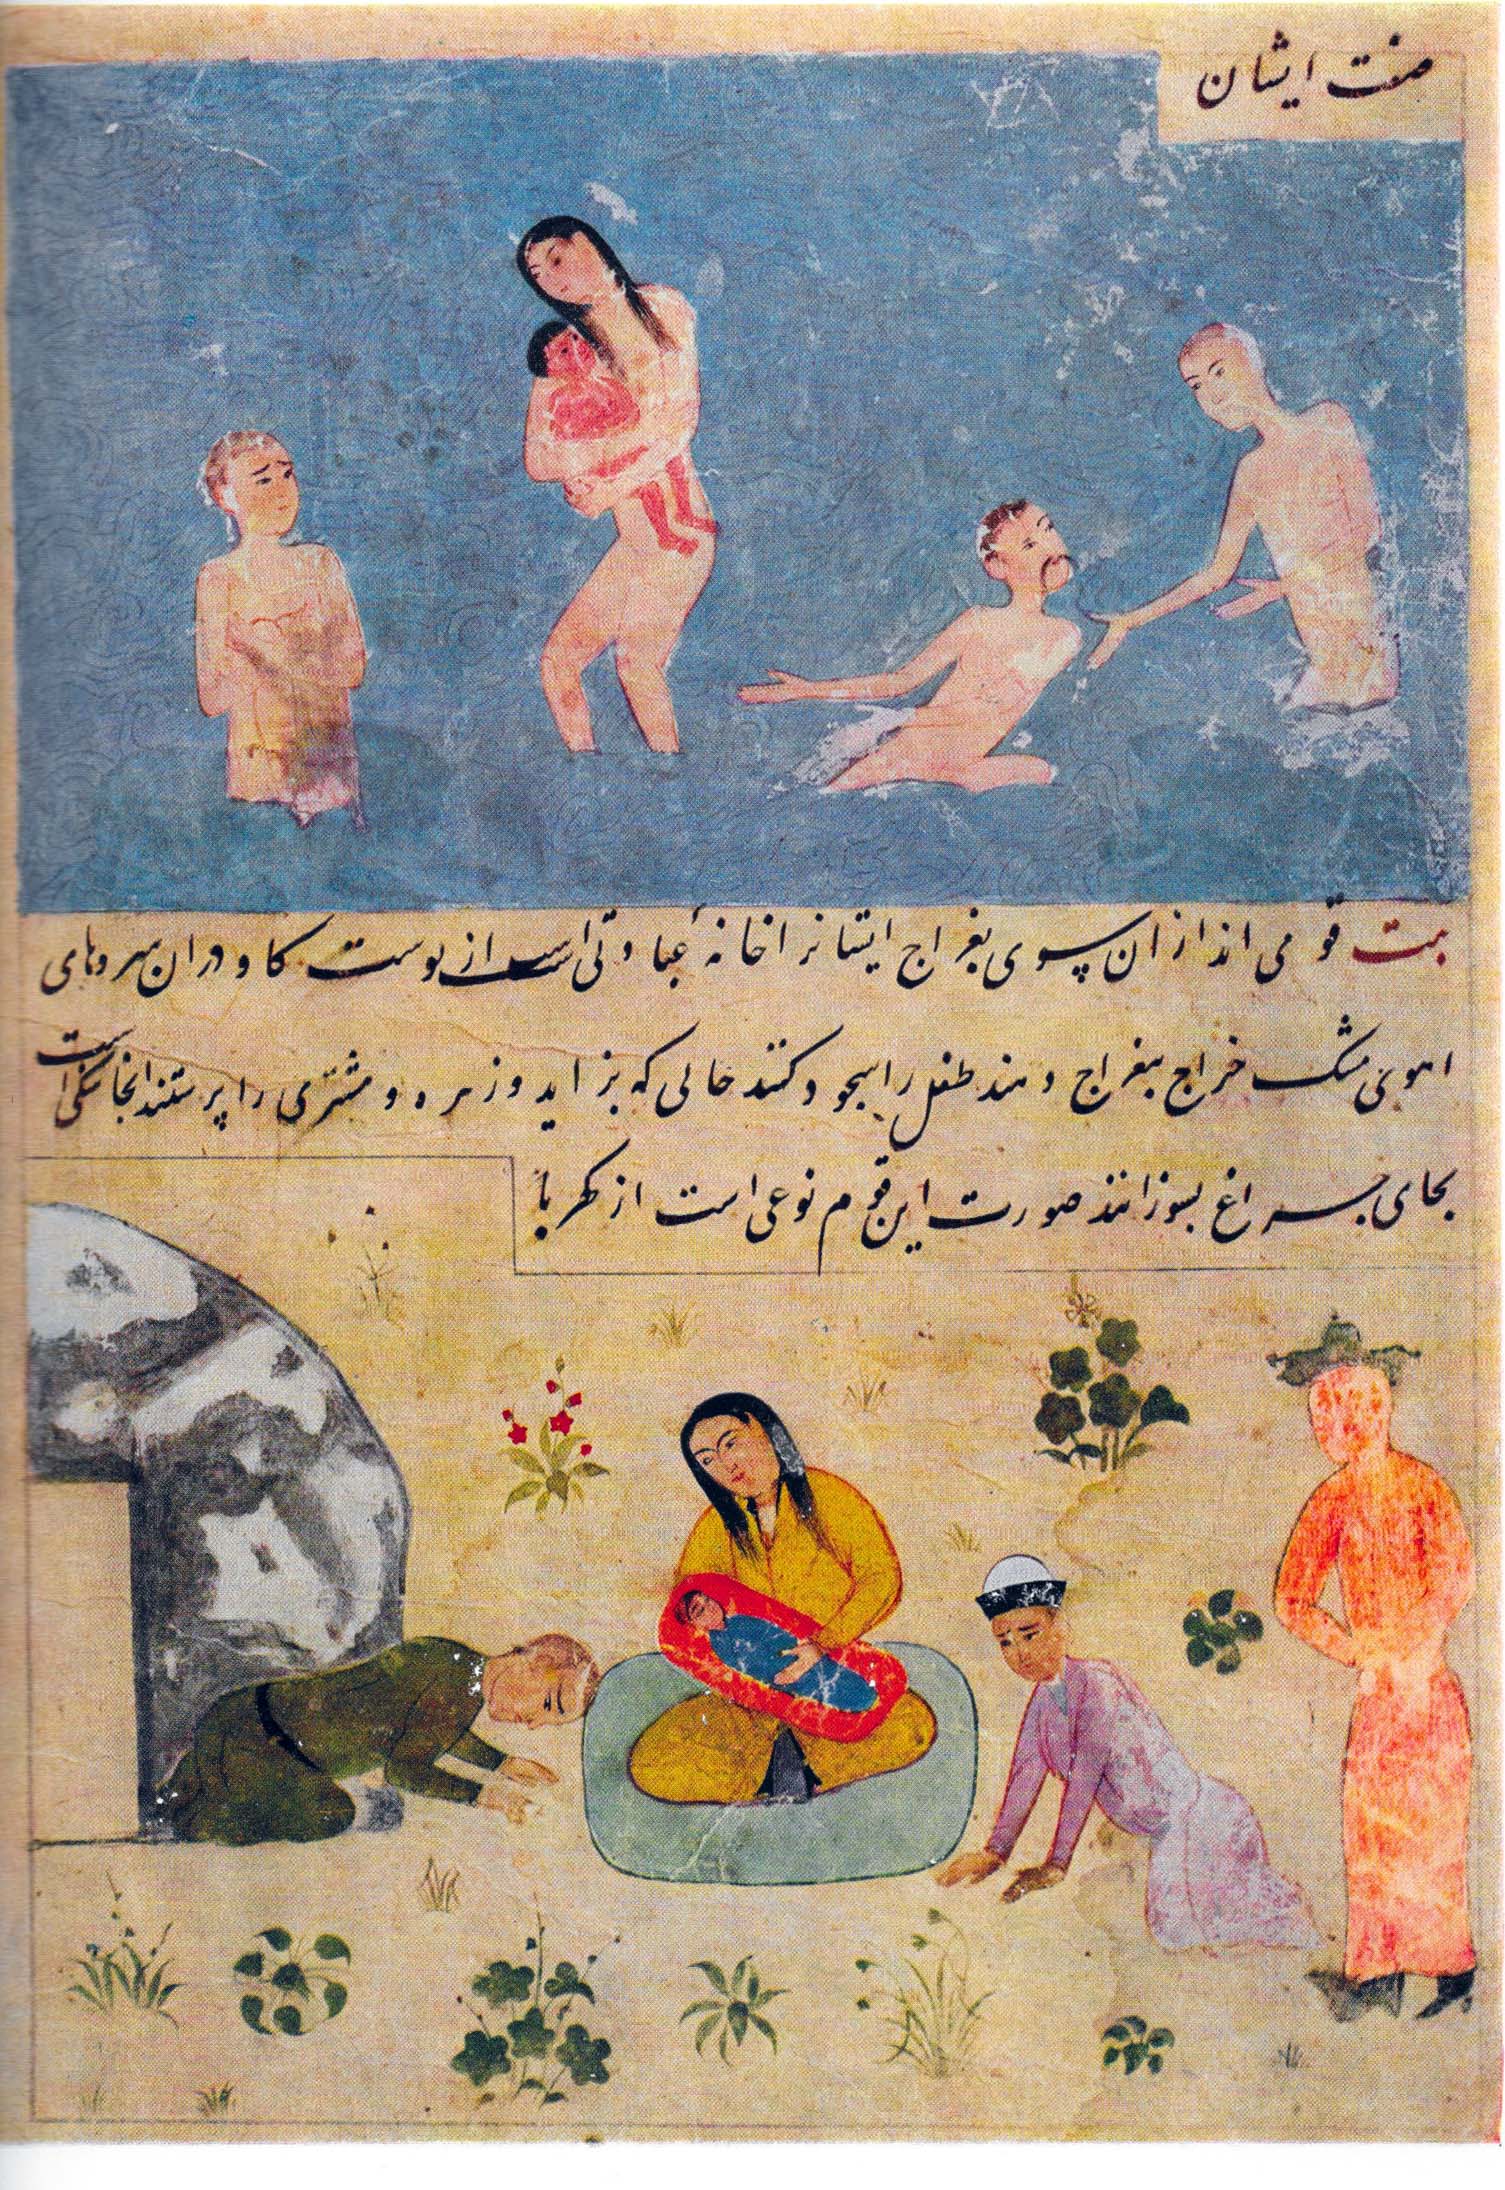 صفت ایشان
بت قومی اند از ان سوی بغراج ایشانرا خانه عباوتی است از پوست کاو دران سروهای
اهوی مشک خراج ببغراج دهند طفل را سجود کنند حالی که بزاید و زهره و مشتری را پرستند انجا سنکی است
بجای چراغ بسوزانند صورت این قوم نوعی است از کهربا